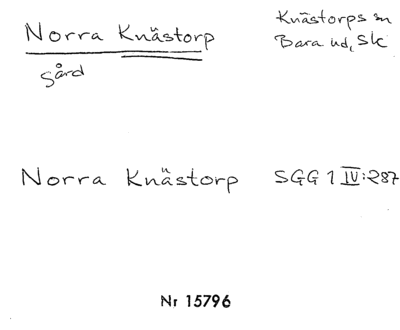 Norra Knästorp
Knästorps sn
Bara hd, Sk
gård
Norra Knästorp SGG 1 IV:287
Nr 15796